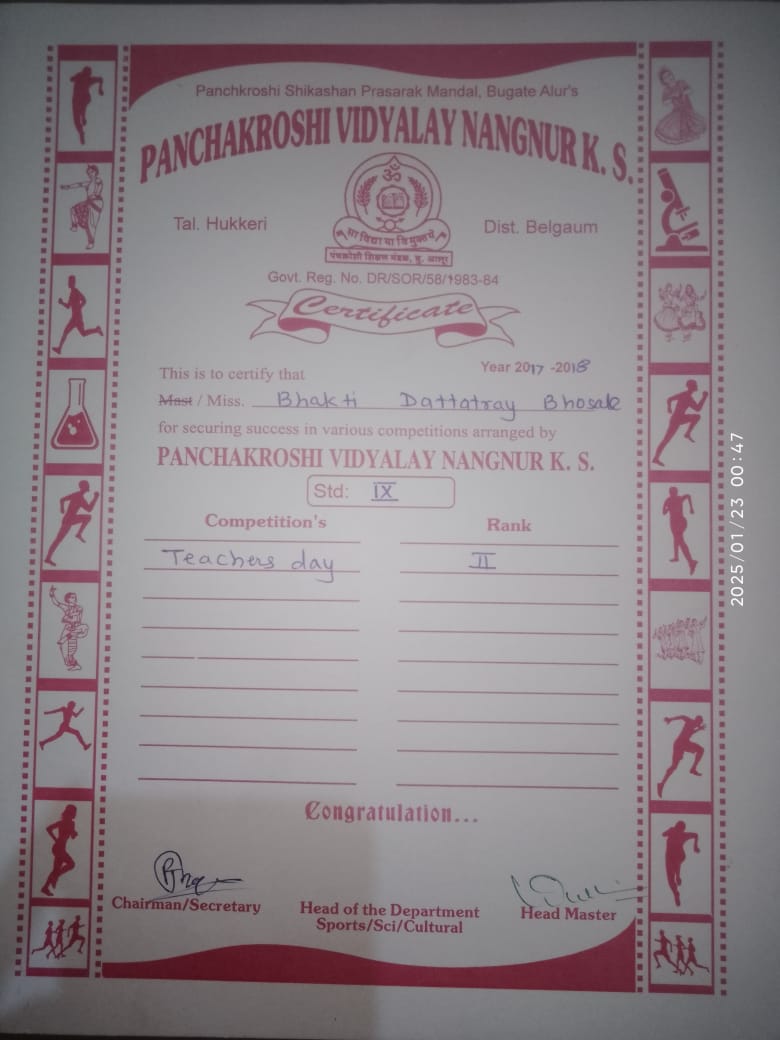 Panchkroshi Shikashan Prasarak Mandal, Bugate Alur's
PANCHAKROSHI VIDYALAY NANGNUR K. S.
Tal. Hukkeri
ॐ
Dist. Belgaum
सा विद्या या विमुक्तये
पंचक्रोशी शिक्षण मंडळ, बु. आलूर
Govt. Reg. No. DR/SOR/58/1983-84
Certificate
Year 2017 -2018
This is to certify that
Mast / Miss. Bhakti Dattatray Bhosale
for securing success in various competitions arranged by
PANCHAKROSHI VIDYALAY NANGNUR K. S.
Std: IX
Competition's Rank
Teachers day II
Congratulation...
Chairman/Secretary
Head of the Department
Sports/Sci/Cultural
Head Master
2025/01/23 00:47